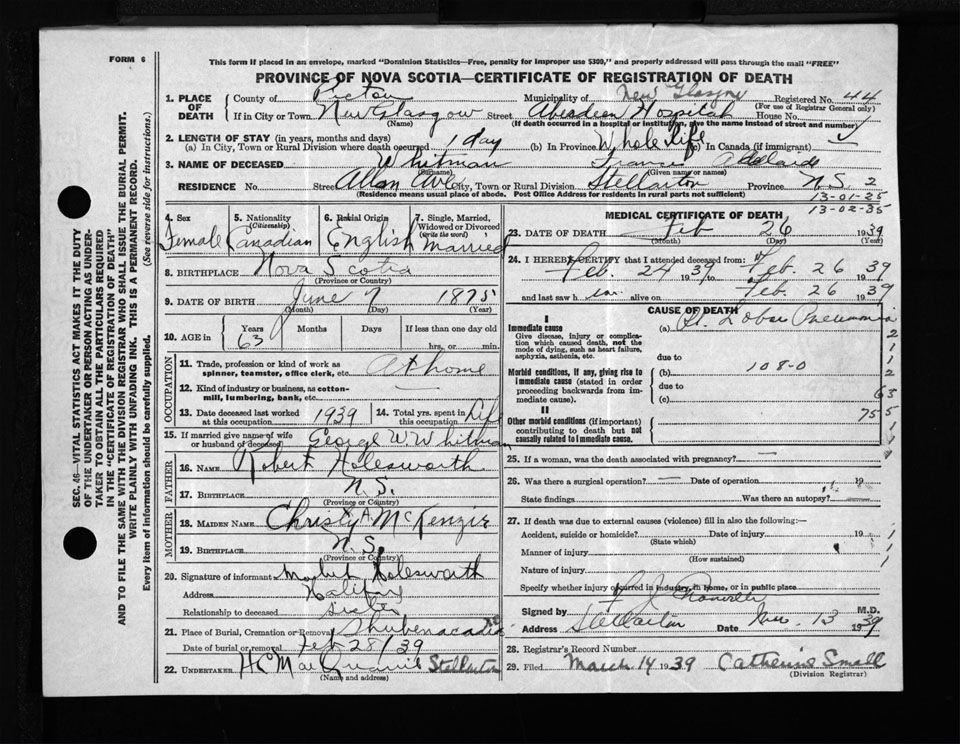 FORM 6
This form if placed in an envelope, marked "Dominion Statistics—Free, penalty for improper use $300," and properly addressed will pass through the mail "FREE"
PROVINCE OF NOVA SCOTIA—CERTIFICATE OF REGISTRATION OF DEATH
1. PLACE OF DEATH County of Pictou Municipality of New Glasgow Registered No. 44
(For use of Registrar General only)
If in City or Town New Glasgow Street Aberdeen Hospital House No.
(Name) (If death occurred in a hospital or institution, give the name instead of street and number)
2. LENGTH OF STAY (in years, months and days)
(a) In City, Town or Rural Division where death occurred 1 day (b) In Province Whole life (c) In Canada (if immigrant)
3. NAME OF DECEASED Whitman Adelaide
(Surname) (Given name or names)
RESIDENCE No. Street Allan Ave. City, Town or Rural Division Stellarton Province N.S. 2
(Residence means usual place of abode. Post Office Address for residents in rural parts not sufficient)
13-01-25
13-02-35
4. Sex Female
5. Nationality (Citizenship) Canadian
6. Racial Origin English
7. Single, Married, Widowed or Divorced (Write the word) Married
8. BIRTHPLACE Nova Scotia
(Province or Country)
9. DATE OF BIRTH June 7 1875
(Month) (Day) (Year)
10. AGE in Years Months Days If less than one day
63 hrs. or min.
OCCUPATION
11. Trade, profession or kind of work as spinner, teamster, office clerk, etc. At home
12. Kind of industry or business, as cotton-mill, lumbering, bank, etc. —
13. Date deceased last worked at this occupation 1939
14. Total yrs. spent in this occupation Life
15. If married give name of wife or husband of deceased George W Whitman
FATHER
16. NAME Robert Holesworth
17. BIRTHPLACE N.S.
(Province or Country)
MOTHER
18. MAIDEN NAME Christy A. McKenzie
19. BIRTHPLACE N.S.
(Province or Country)
20. Signature of informant Holesworth
Address Halifax
Relationship to deceased sister
21. Place of Burial, Cremation or Removal Shubenacadie
Date of burial or removal Feb 28/39
22. UNDERTAKER Stellarton
(Name and address)
MEDICAL CERTIFICATE OF DEATH
23. DATE OF DEATH Feb 26 1939
(Month) (Day) (Year)
24. I HEREBY CERTIFY that I attended deceased from
Feb. 24 1939 to Feb. 26 1939
and last saw her alive on Feb. 26 1939
CAUSE OF DEATH
I
Immediate cause (a) Lobar Pneumonia
Give disease, injury or complication which caused death, not the mode of dying, such as heart failure, asphyxia, asthenia, etc.
due to
Morbid conditions, if any, giving rise to immediate cause (stated in order proceeding backwards from immediate cause). (b) 108-0
due to
(c) 63
II
Other morbid conditions (if important) contributing to death but not causally related to immediate cause. 75
25. If a woman, was the death associated with pregnancy? —
26. Was there a surgical operation? — Date of operation 19
State findings Was there an autopsy? —
27. If death was due to external causes (violence) fill in also the following:—
Accident, suicide or homicide? Date of injury 19
(State which)
Manner of injury
(How sustained)
Nature of injury
Specify whether injury occurred in industry, in home, or in public place
Signed by M.D.
Address Stellarton Date 13 1939
28. Registrar's Record Number
29. Filed March 14 1939 Catherine Small
(Division Registrar)
SEC. 46—VITAL STATISTICS ACT MAKES IT THE DUTY OF THE UNDERTAKER OR PERSON ACTING AS UNDERTAKER TO OBTAIN ALL THE PARTICULARS REQUIRED IN THE "CERTIFICATE OF REGISTRATION OF DEATH"
AND TO FILE THE SAME WITH THE DIVISION REGISTRAR WHO SHALL ISSUE THE BURIAL PERMIT.
WRITE PLAINLY WITH UNFADING INK. THIS IS A PERMANENT RECORD.
Every item of information should be carefully supplied. (See reverse side for instructions.)